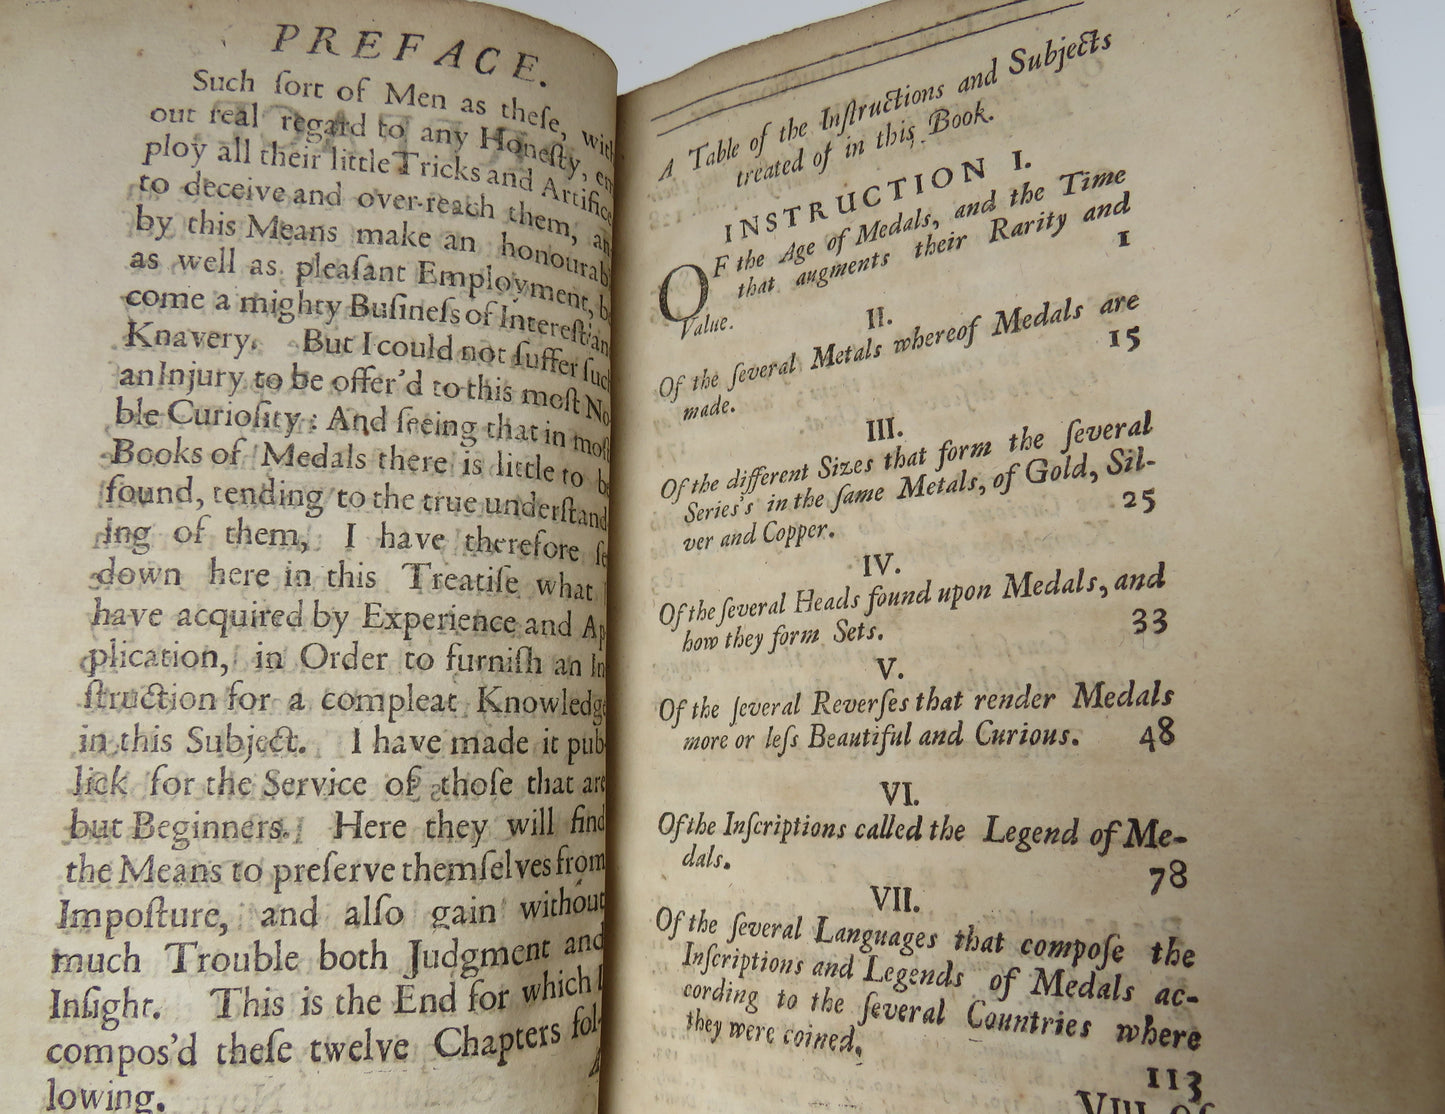 PREFACE.
Such ſort of Men as theſe, with
out real regard to any Honeſty, em
ploy all their little Tricks and Artifice
to deceive and over-reach them, an
by this Means make an honourab
as well as pleaſant Employment, be
come a mighty Buſineſs of Intereſt an
Knavery. But I could not ſuffer ſuc
an Injury to be offer'd to this moſt No
ble Curioſity: And ſeeing that in moſt
Books of Medals there is little to b
found, tending to the true underſtand
ing of them, I have therefore ſe
down here in this Treatiſe what I
have acquired by Experience and Ap
plication, in Order to furniſh an In
ſtruction for a compleat Knowledge
in this Subject. I have made it pub
lick for the Service of thoſe that are
but Beginners. Here they will find
the Means to preſerve themſelves from
Impoſture, and alſo gain without
much Trouble both Judgment and
Inſight. This is the End for which I
compos'd theſe twelve Chapters fol-
lowing.
A Table of the Inſtructions and Subjects
treated of in this Book.
INSTRUCTION I.
OF the Age of Medals, and the Time
that augments their Rarity and
Value. 1
II.
Of the ſeveral Metals whereof Medals are
made. 15
III.
Of the different Sizes that form the ſeveral
Series's in the ſame Metals, of Gold, Sil-
ver and Copper. 25
IV.
Of the ſeveral Heads found upon Medals, and
how they form Sets. 33
V.
Of the ſeveral Reverſes that render Medals
more or leſs Beautiful and Curious. 48
VI.
Of the Inſcriptions called the Legend of Me-
dals. 78
VII.
Of the ſeveral Languages that compoſe the
Inſcriptions and Legends of Medals ac-
cording to the ſeveral Countries where
they were coined. 113
VIII. Of